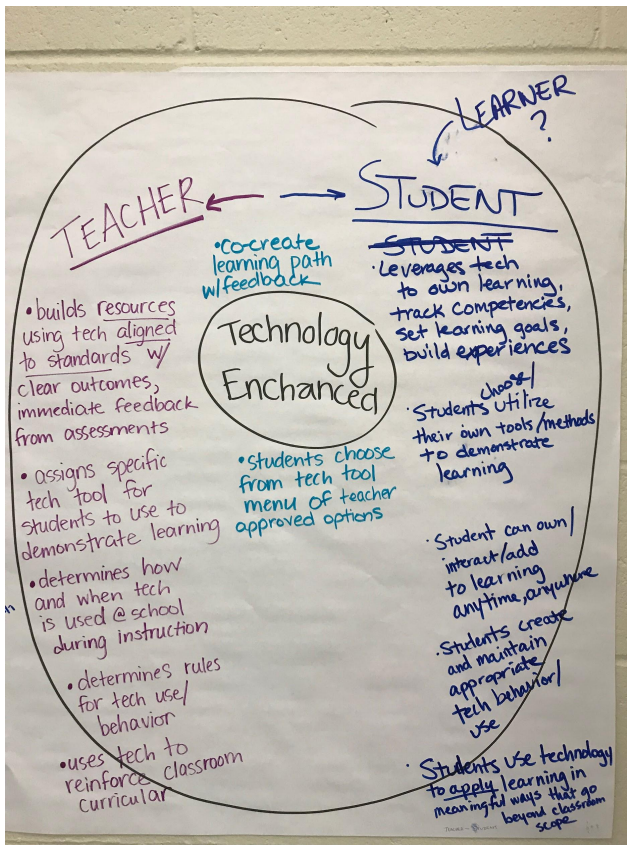 LEARNER
?
TEACHER
STUDENT
STUDENT
•co-create
learning path
w/feedback
Technology
Enchanced
•Students choose
from tech tool
menu of teacher
approved options
•builds resources
using tech aligned
to standards w/
clear outcomes,
immediate feedback
from assessments
•assigns specific
tech tool for
students to use to
demonstrate learning
•determines how
and when tech
is used @ school
during instruction
•determines rules
for tech use/
behavior
•uses tech to
reinforce classroom
curricular
•Leverages tech
to own learning,
track competencies,
set learning goals,
build experiences
choose/
•Students utilize
their own tools/methods
to demonstrate
learning
•Student can own/
interact/add
to learning
anytime, anywhere
•Students create
and maintain
appropriate
tech behavior/
use
•Students use technology
to apply learning in
meaningful ways that go
beyond classroom
scope